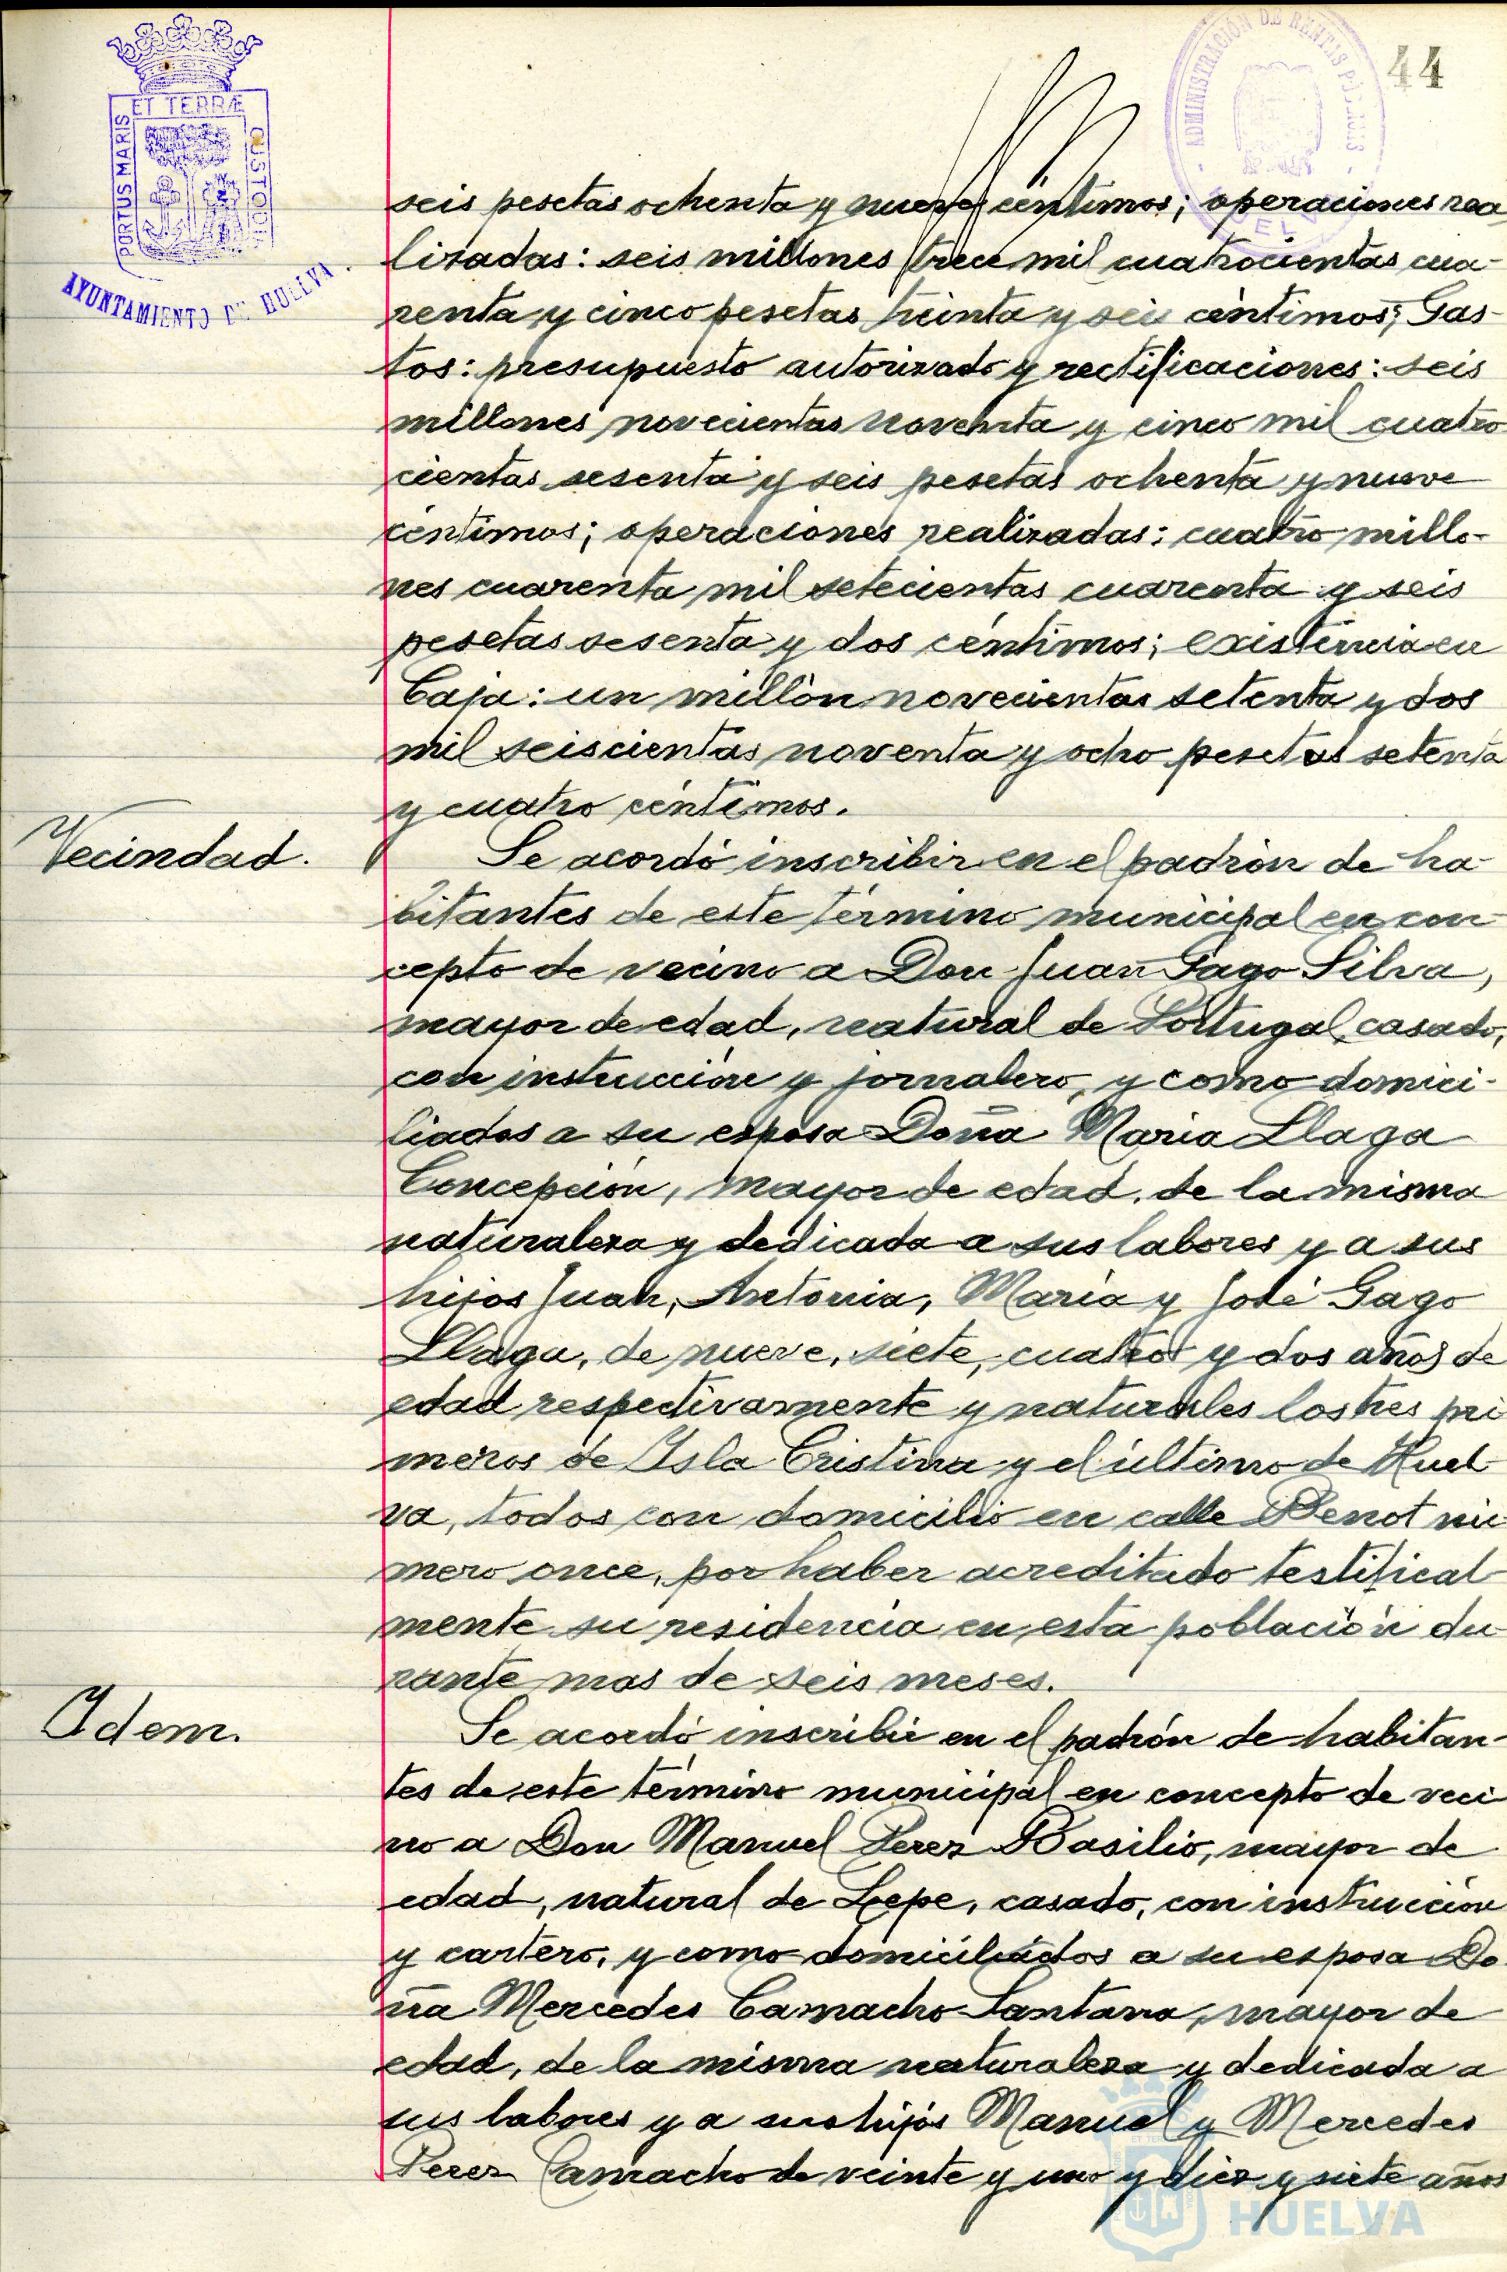 44
PORTUS MARIS
ET TERRÆ
CUSTODIA
AYUNTAMIENTO DE HUELVA
ADMINISTRACIÓN DE RENTAS PÚBLICAS
seis pesetas ochenta y nueve céntimos; operaciones rea
lizadas: seis millones trece mil cuatrocientas cua-
renta y cinco pesetas treinta y seis céntimos; Gas-
tos: presupuesto autorizado y rectificaciones: seis
millones novecientas noventa y cinco mil cuatro
cientas sesenta y seis pesetas ochenta y nueve
céntimos; operaciones realizadas: cuatro millo-
nes cuarenta mil setecientas cuarenta y seis
pesetas sesenta y dos céntimos; existencia en
Caja: un millón novecientas setenta y dos
mil seiscientas noventa y ocho pesetas setenta
y cuatro céntimos.
Vecindad.
Se acordó inscribir en el padrón de ha-
bitantes de este término municipal en con-
cepto de vecino a Don Juan Gago Silva,
mayor de edad, natural de Portugal, casado,
con instrucción y jornalero, y como domici-
liados a su esposa Doña Maria Llaga
Concepción, mayor de edad, de la misma
naturaleza y dedicada a sus labores y a sus
hijos Juan, Antonia, María y José Gago
Llaga, de nueve, siete, cuatro y dos años de
edad respectivamente y naturales los tres pri
meros de Isla Cristina y el último de Huel-
va, todos con domicilio en calle Benot nú-
mero once, por haber acreditado testifical-
mente su residencia en esta población du-
rante mas de seis meses.
Idem.
Se acordó inscribir en el padrón de habitan-
tes de este término municipal en concepto de veci
no a Don Manuel Perez Basilio, mayor de
edad, natural de Lepe, casado, con instrucción
y cartero, y como domiciliados a su esposa Do
ña Mercedes Camacho Santana, mayor de
edad, de la misma naturaleza y dedicada a
sus labores y a sus hijos Manuel y Mercedes
Perez Camacho de veinte y uno y diez y siete años
HUELVA